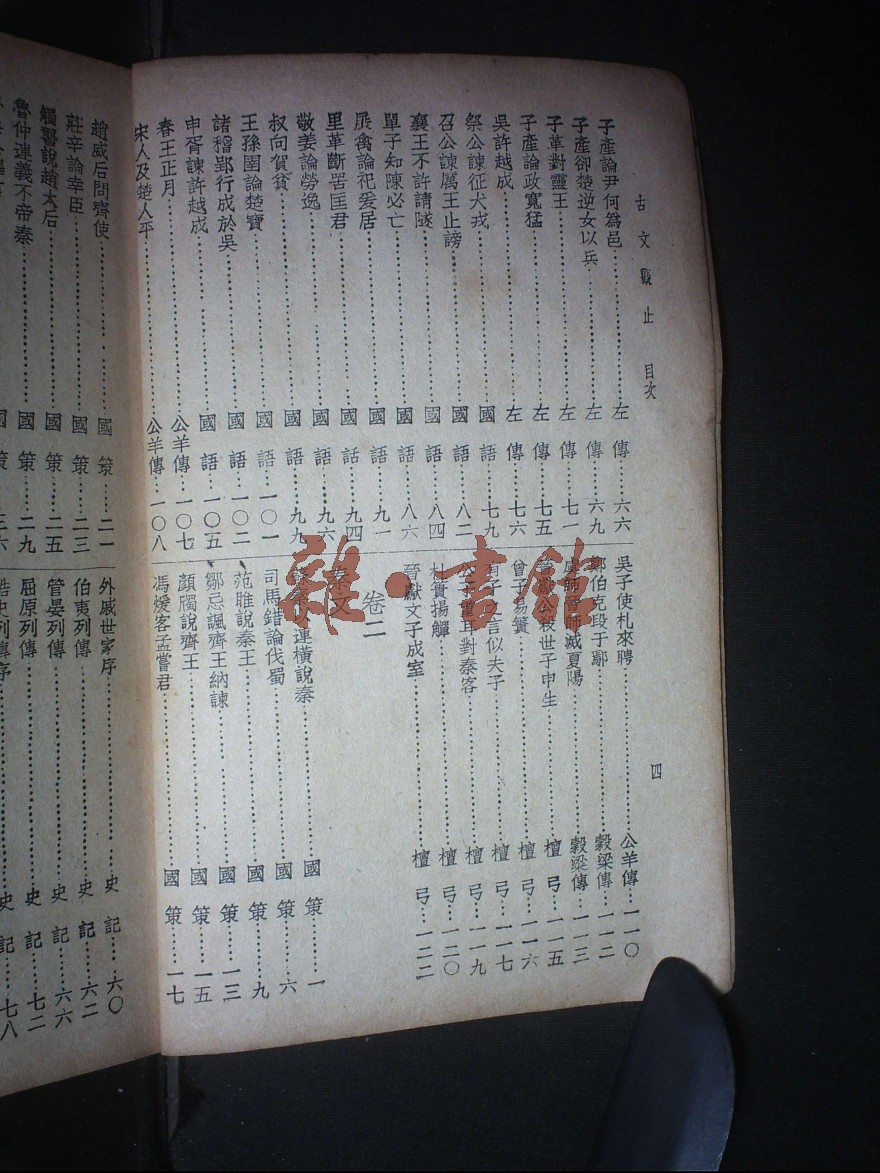 古文觀止 目次
四
子產論尹何為邑 左傳 六六
子產卻楚逆女以兵 左傳 六九
子革對靈王 左傳 七一
子產論政寬猛 左傳 七五
吳許越成 左傳 七六
祭公諫征犬戎 國語 七九
召公諫厲王止謗 國語 八二
襄王不許請隧 國語 八四
單子知陳必亡 國語 八六
展禽論祀爰居 國語 九一
里革斷罟匡君 國語 九四
敬姜論勞逸 國語 九六
叔向賀貧 國語 九九
王孫圉論楚寶 國語 一〇一
諸稽郢行成於吳 國語 一〇二
申胥諫許越成 國語 一〇五
春王正月 公羊傳 一〇七
宋人及楚人平 公羊傳 一〇八
吳子使札來聘 公羊傳 一一〇
鄭伯克段于鄢 穀梁傳 一一二
虞師晉師滅夏陽 穀梁傳 一一三
獻公殺世子申生 檀弓 一一五
曾子易簀 檀弓 一一六
有子之言似夫子 檀弓 一一七
公子重耳對秦客 檀弓 一一九
杜簣揚觶 檀弓 一二〇
晉獻文子成室 檀弓 一二二
卷二
秦文
蘇秦以連橫說秦 國策 一
司馬錯論伐蜀 國策 六
范雎說秦王 國策 九
鄒忌諷齊王納諫 國策 一三
顏斶說齊王 國策 一五
馮煖客孟嘗君 國策 一七
趙威后問齊使 國策 二一
莊辛論幸臣 國策 二三
觸讋說趙太后 國策 二五
魯仲連義不帝秦 國策 二九
國策
外戚世家序 史記 六〇
伯夷列傳 史記 六二
管晏列傳 史記 六六
屈原列傳 史記 七二
酷吏列傳序 史記 七八
雜·書館